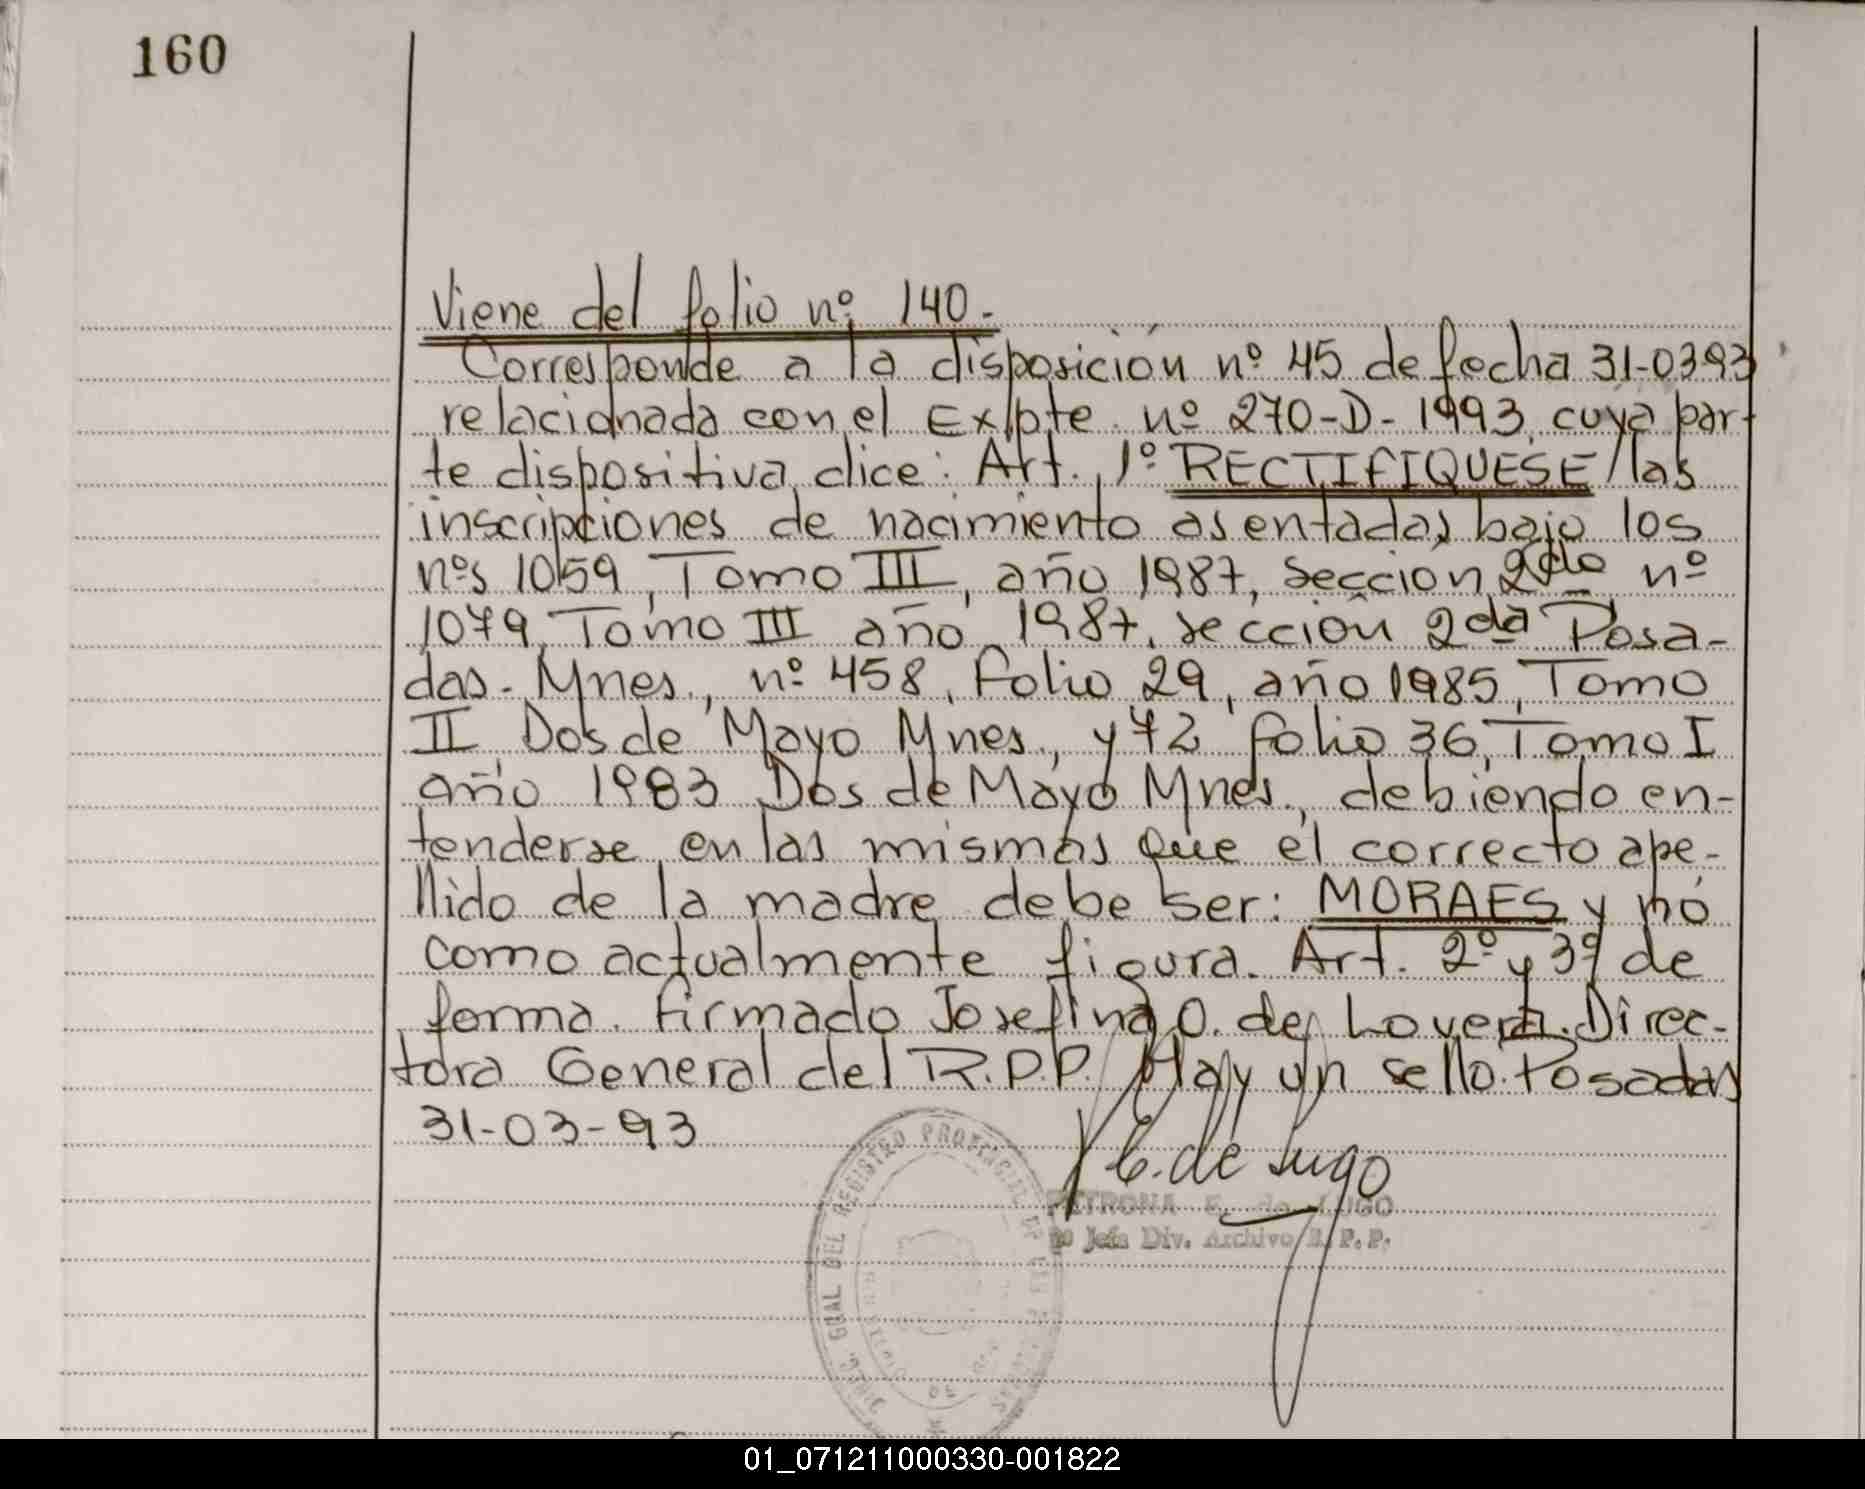 160
Viene del folio nº 140.-
Corresponde a la disposición nº 45 de fecha 31-0393
relacionada con el Expte nº 270-D-1993, cuya par-
te dispositiva dice: Art. 1º RECTIFIQUESE/las
inscripciones de nacimiento asentadas bajo los
nºs 1059, Tomo III, año 1987, sección 2da nº
1079, Tomo III año 1987, sección 2da Posa-
das- Mnes., nº 458, folio 29, año 1985, Tomo
II Dos de Mayo Mnes., y 72 folio 36, Tomo I
año 1983 Dos de Mayo Mnes., debiendo en-
tenderse en las mismas que el correcto ape-
llido de la madre debe ser: MORAES y no
como actualmente figura. Art. 2º y 3º de
forma. Firmado Josefina O. de Lovera. Direc-
tora General del R.P.P. Hay un sello. Posadas
31-03-93
E. de Lugo
PETRONA E. de LUGO
Jefa Div. Archivo R.P.P.
GRAL DEL REGISTRO PROVINCIAL DE LAS
01_071211000330-001822